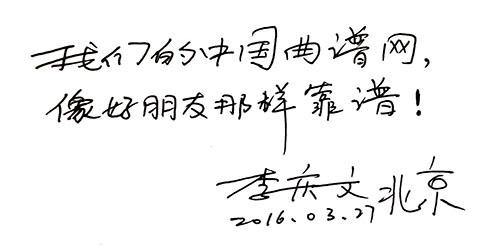 我们的中国曲谱网，
像好朋友那样靠谱！
李庆文 北京
2016.03.27